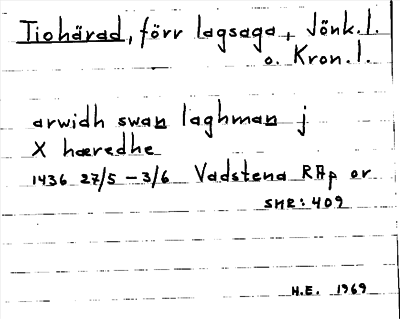 Tiohärad, förr lagsaga, Jönk.l.
o. Kron.l.
arwidh swan laghman j
X hæredhe
1436 27/5 – 3/6 Vadstena RAp or
SMR: 409
H.E. 1969